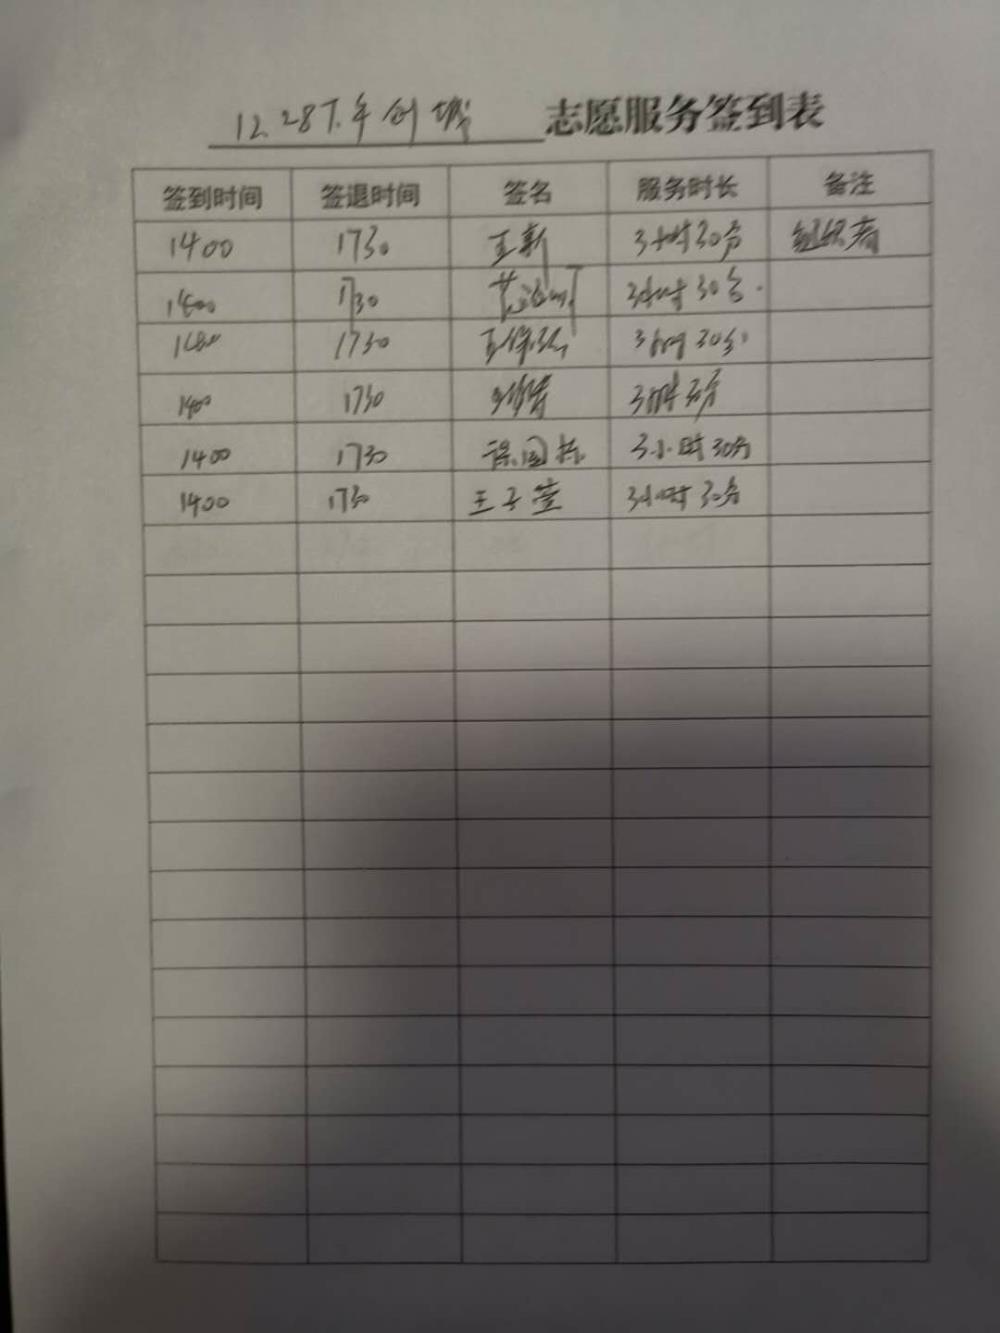 12.28下午创城 志愿服务签到表
签到时间 签退时间 签名 服务时长 备注
1400 1730 王新 3小时30分 组织者
1400 1730 3小时30分.
1400 1730 3小时30分
1400 1730 3小时30分
1400 1730 3小时30分
1400 1730 王子萱 3小时30分